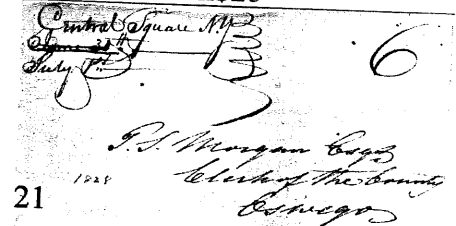 Central Square N.Y.
June 30th
July 1st
6
T. S. Morgan Esqr
Clerk of the County
Oswego
1828
21